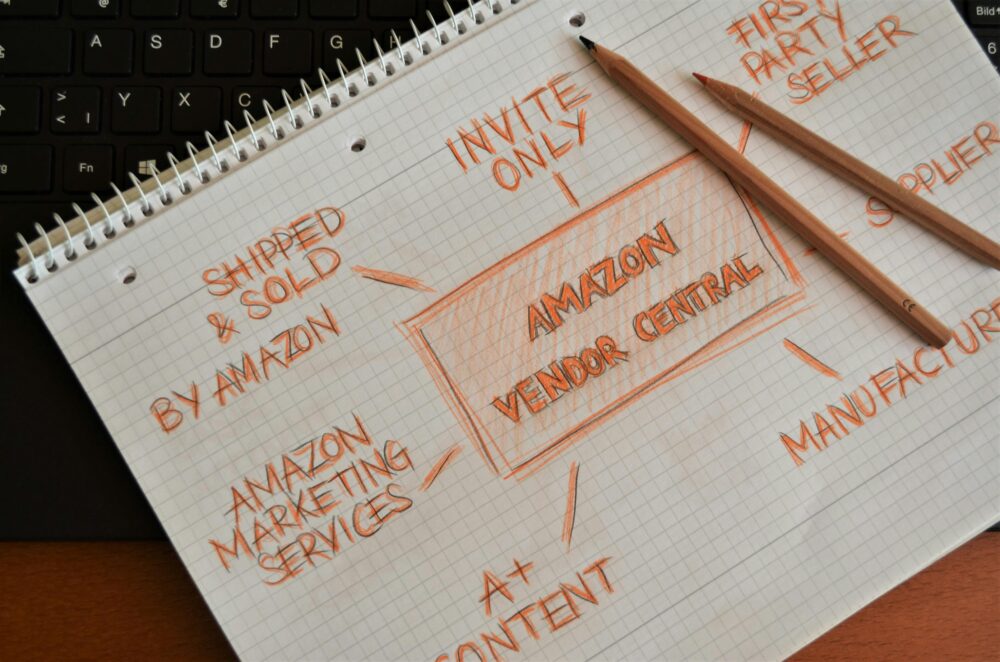 A S D F G
Y X C
Fn
Bild
6
INVITE
ONLY
FIRST
PARTY
SELLER
SUPPLIER
SHIPPED
& SOLD
BY AMAZON
AMAZON
VENDOR CENTRAL
MANUFACTURE
AMAZON
MARKETING
SERVICES
A+
CONTENT